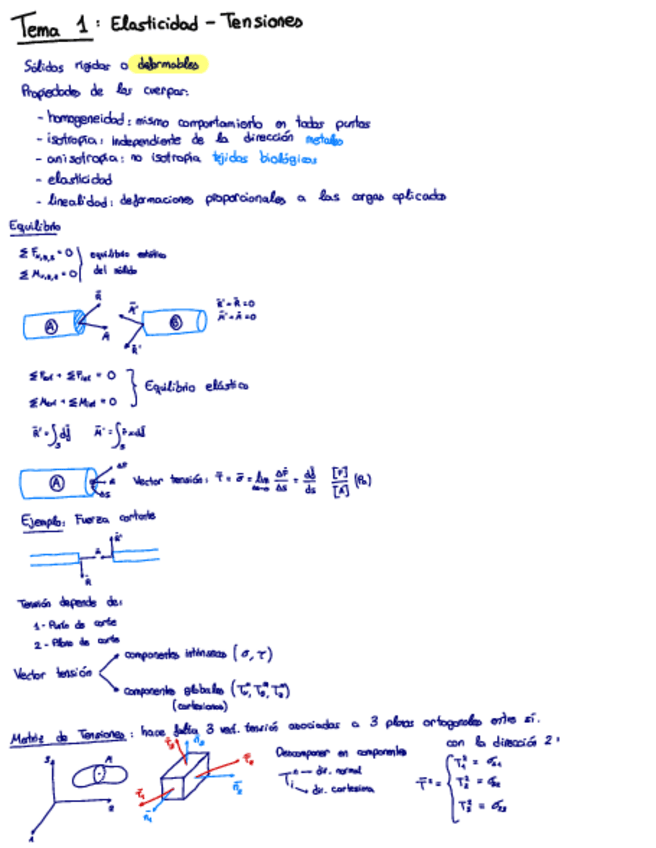 Tema 1: Elasticidad - Tensiones
Sólidos rígidos o deformables
Propiedades de los cuerpos:
- homogeneidad: mismo comportamiento en todos puntos
- isotropía: independiente de la dirección metales
- anisotropía: no isotropía tejidos biológicos
- elasticidad
- linealidad: deformaciones proporcionales a las cargas aplicadas
Equilibrio
Σ F = 0
Σ M = 0
equilibrio estático
del sólido
A
B
R' - R = 0
M' - M = 0
Σ Fext + Σ Fint = 0
Σ Mext + Σ Mint = 0
Equilibrio elástico
A
Vector tensión:
ΔF
ΔS
(Pa)
Ejemplo: Fuerza cortante
Tensión depende de:
1 - Punto de corte
2 - Plano de corte
Vector tensión
componentes intrínsecas (σ, τ)
componentes globales
(cartesianas)
Matriz de Tensiones: hace falta 3 vect. tensión asociadas a 3 planos ortogonales entre sí.
Descomponer en componentes
dir. normal
dir. cartesiana
con la dirección 2: